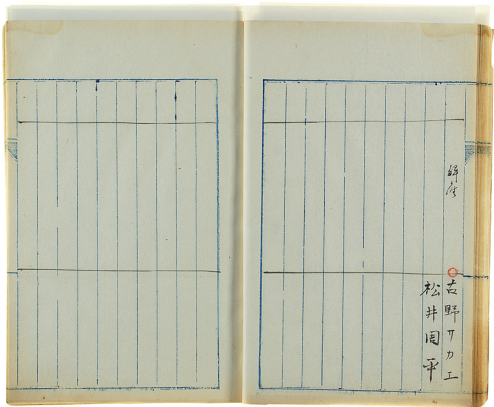 吉野サカエ
松井周平